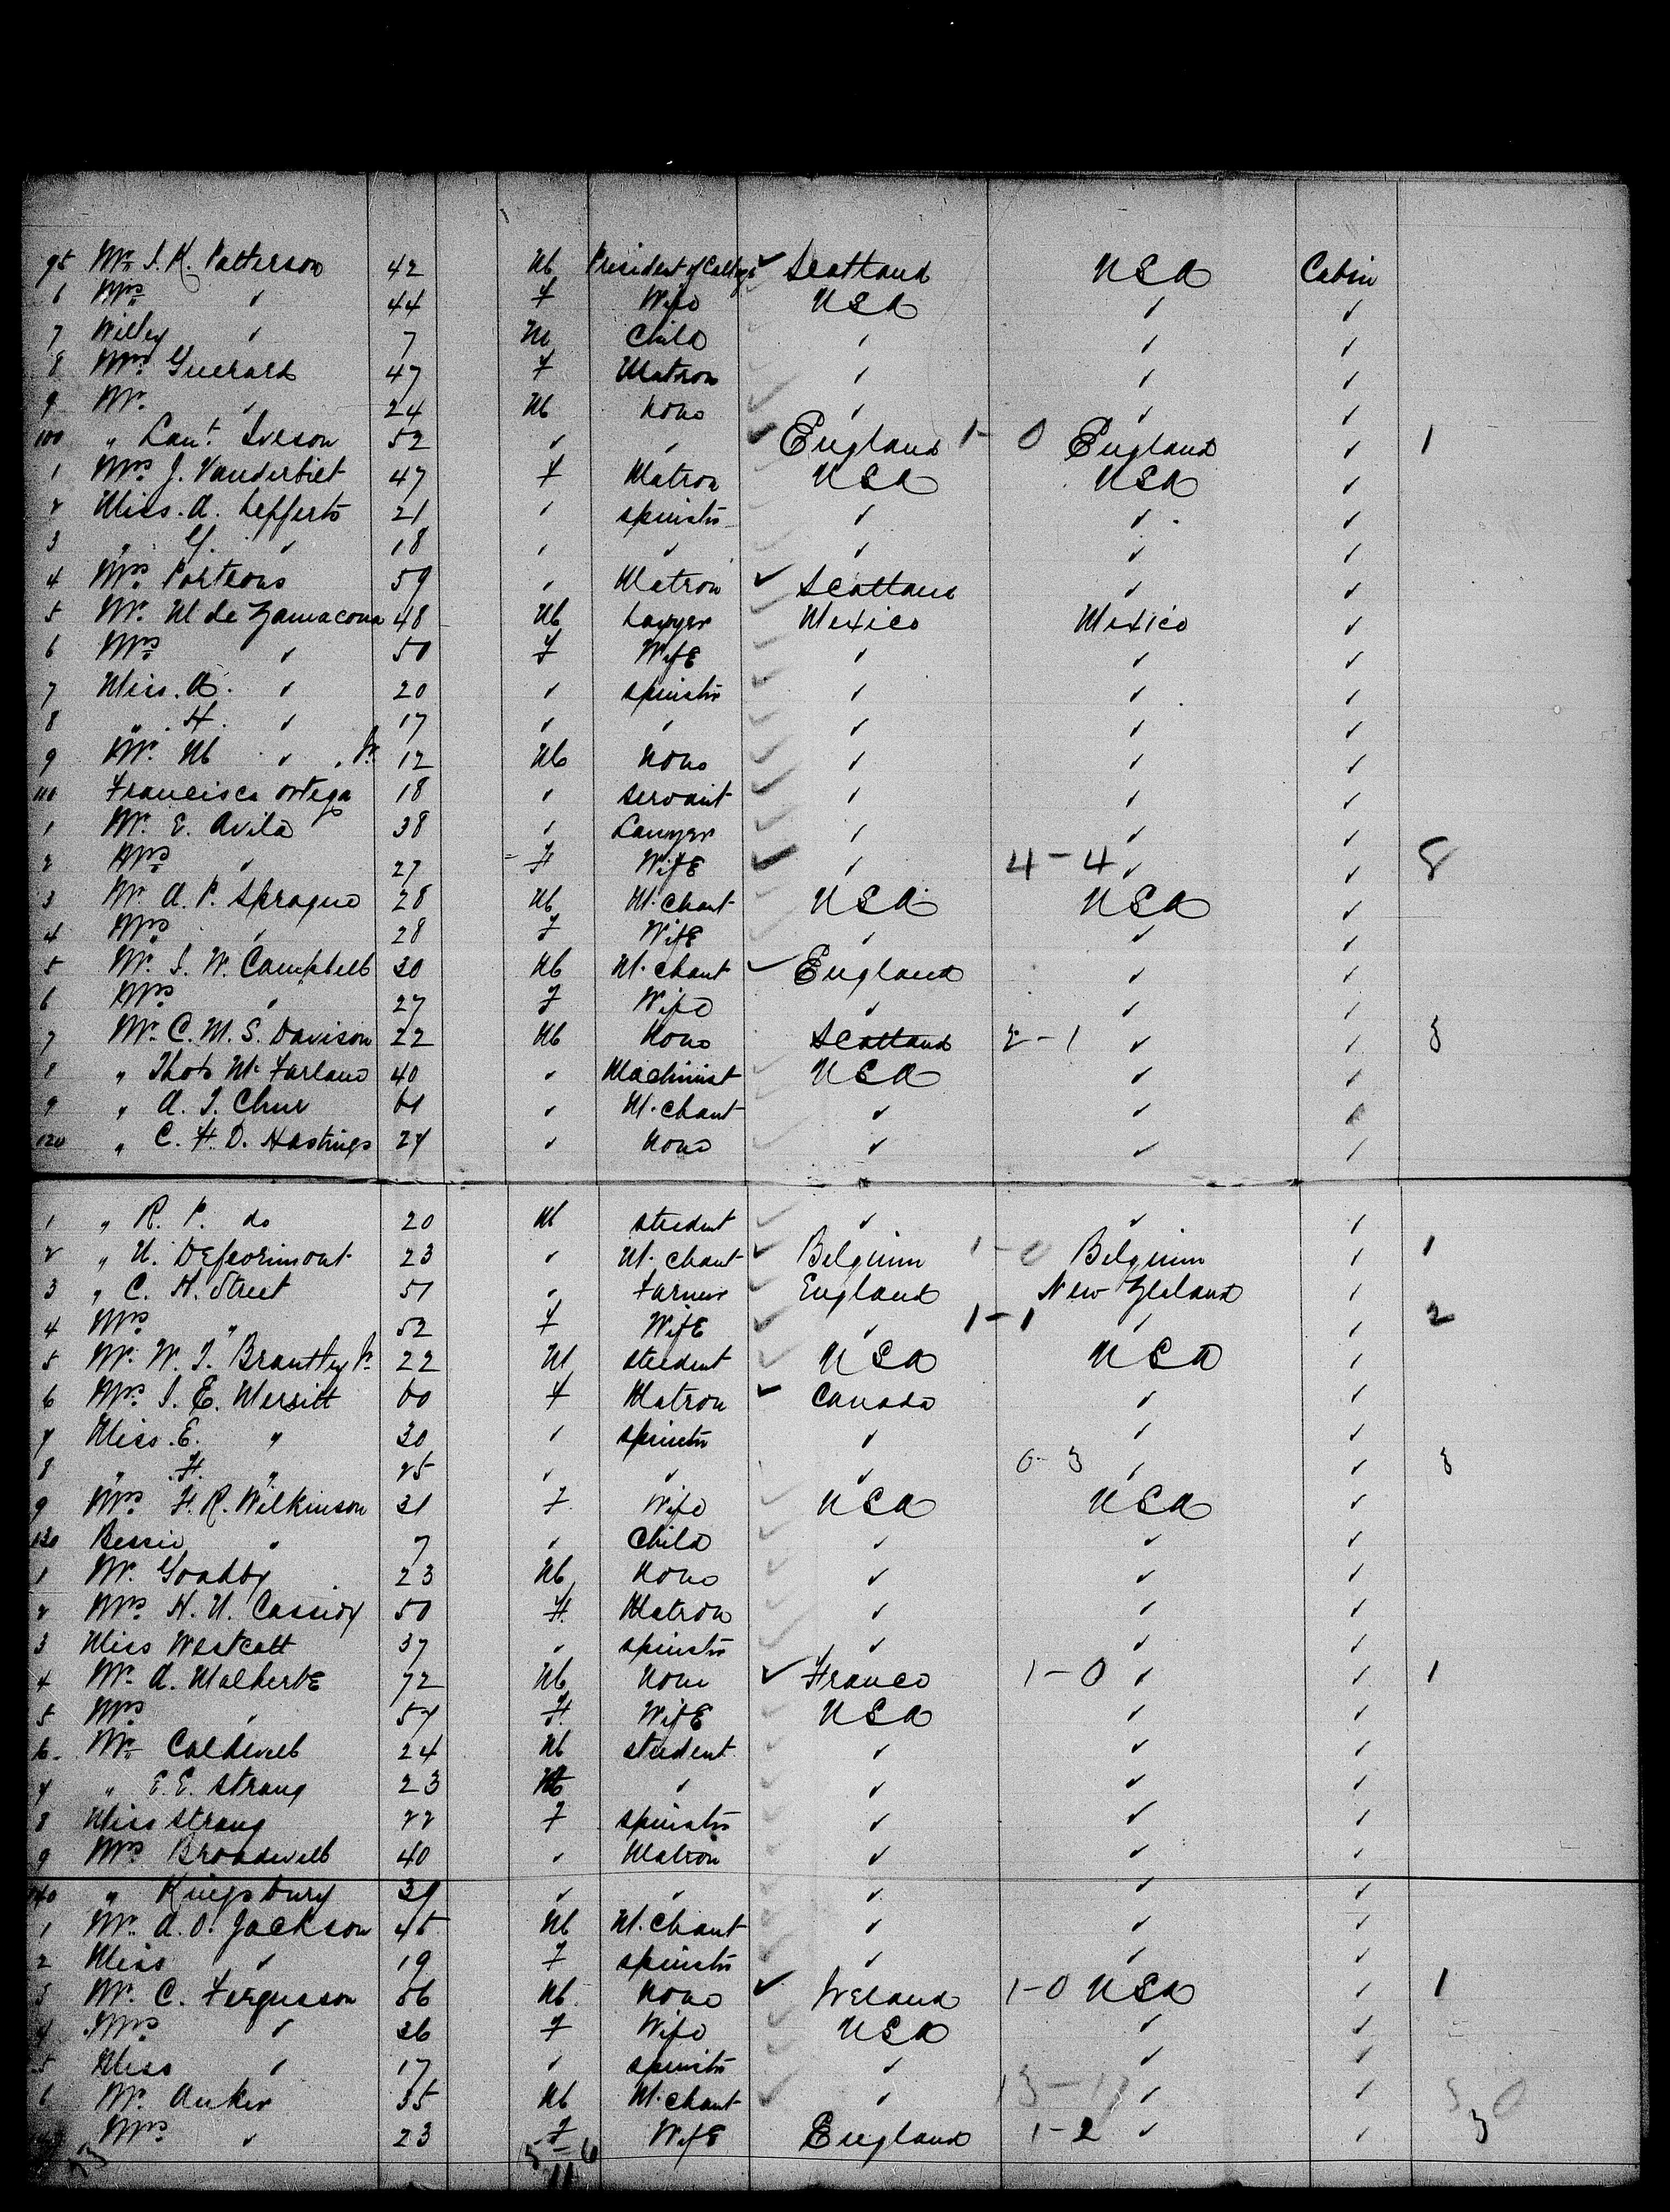 95 Mr. J. K. Patterson 42 M President of College ✓ Scotland USA Cabin
6 Mrs ✓ 44 F Wife USA ✓ ✓
7 Willey ✓ 7 M Child ✓ ✓ ✓
8 Mrs. Guerard 47 F Matron ✓ ✓ ✓
9 Mr. ✓ 24 M None ✓ ✓ ✓
100 " Cant. Iveson 52 ✓ ✓ ✓ England 1-0 England ✓ 1
1 Mrs J. Vanderbilt 47 F Matron USA USA ✓
2 Miss. A. Lefferts 21 ✓ Spinstr ✓ ✓ ✓
3 " G. ✓ 18 ✓ ✓ ✓ ✓ ✓
4 Mrs. Porteous 59 ✓ Matron ✓ Scotland ✓ ✓
5 Mr. M de Zamacona 48 M Lawyer Mexico Mexico ✓
6 Mrs ✓ 50 F Wife ✓ ✓ ✓
7 Miss. A. ✓ 20 ✓ Spinstr ✓ ✓ ✓
8 " H. ✓ 17 ✓ ✓ ✓ ✓ ✓
9 Mr. M ✓ Jr. 12 M None ✓ ✓ ✓
110 Francisca Ortega 18 ✓ Servant ✓ ✓ ✓
1 Mr. E. Avila 38 ✓ Lawyer ✓ ✓ ✓
2 Mrs ✓ 27 F Wife ✓ ✓ 4-4 ✓ ✓ 8
3 Mr. A. P. Sprague 28 M M.chant USA USA ✓
4 Mrs ✓ 28 F Wife ✓ ✓ ✓
5 Mr. J. W. Campbell 30 M M.chant ✓ England ✓ ✓
6 Mrs ✓ 27 F Wife ✓ ✓ ✓
7 Mr. C. M. S. Davison 22 M None Scotland 2-1 ✓ ✓ 3
8 " Thos Mc Farland 40 ✓ Machinist USA ✓ ✓
9 " A. J. 61 ✓ M.chant ✓ ✓ ✓
120 " C. H. D. Hastings 24 ✓ None ✓ ✓ ✓
1 " R. P. do 20 M Student ✓ ✓ ✓
2 " 23 ✓ M.chant ✓ Belgium 1-0 Belgium ✓ 1
3 " C. H. Street 51 ✓ Farmer England New Zealand ✓
4 Mrs " 52 F Wife ✓ 1-1 ✓ ✓ 2
5 Mr. W. T. Brantley Jr. 22 M Student USA USA ✓
6 Mrs. J. E. Merritt 60 F Matron ✓ Canada ✓ ✓
7 Miss. E. " 30 ✓ Spinstr ✓ ✓ ✓
8 " H. " 25 ✓ ✓ ✓ 0-3 ✓ ✓ 3
9 Mrs H. R. Wilkinson 31 F Wife USA USA ✓
130 Bessie " 7 ✓ Child ✓ ✓ ✓
1 Mr. Goadby 23 M None ✓ ✓ ✓
2 Mrs H. N. Cassidy 50 F. Matron ✓ ✓ ✓
3 Miss Westcott 37 ✓ Spinstr ✓ ✓ ✓
4 Mr. A. Malherbe 72 M None ✓ France 1-0 ✓ ✓ 1
5 Mrs ✓ 54 F. Wife USA ✓ ✓
6. Mr Caldwell 24 M Student ✓ ✓ ✓
7 " E. E. Strong 23 M ✓ ✓ ✓ ✓
8 Miss Strong 22 F Spinstr ✓ ✓ ✓
9 Mrs Broadwell 40 ✓ Matron ✓ ✓ ✓
140 " Kingsbury 39 ✓ ✓ ✓ ✓ ✓
1 Mr. A. O. Jackson 45 M M.chant ✓ ✓ ✓
2 Miss ✓ 19 F Spinstr ✓ ✓ ✓
3 Mr. C. Fergusson 56 M. None ✓ Ireland 1-0 USA ✓ 1
4 Mrs ✓ 36 F Wife USA ✓ ✓
5 Miss ✓ 17 ✓ Spinstr ✓ ✓ ✓
6 Mr. Anker 35 M M.chant ✓ ✓ ✓
Mrs. ✓ 23 F Wife England 1-2 ✓ ✓ 3
5-6
11